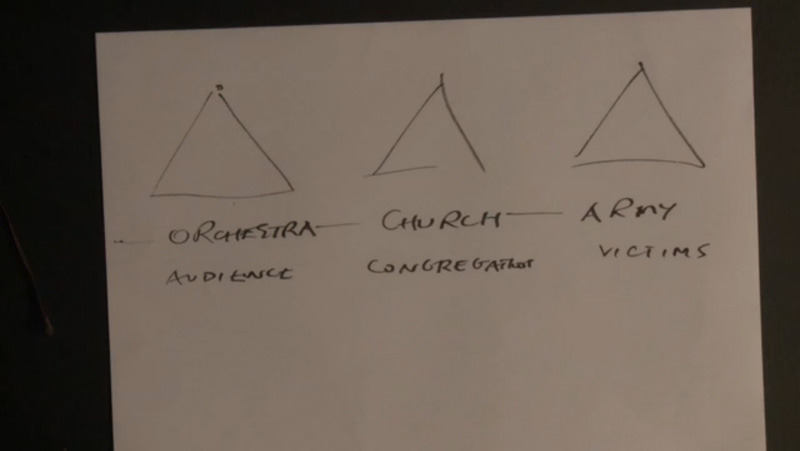 ORCHESTRA — CHURCH — ARMY
AUDIENCE CONGREGATION VICTIMS